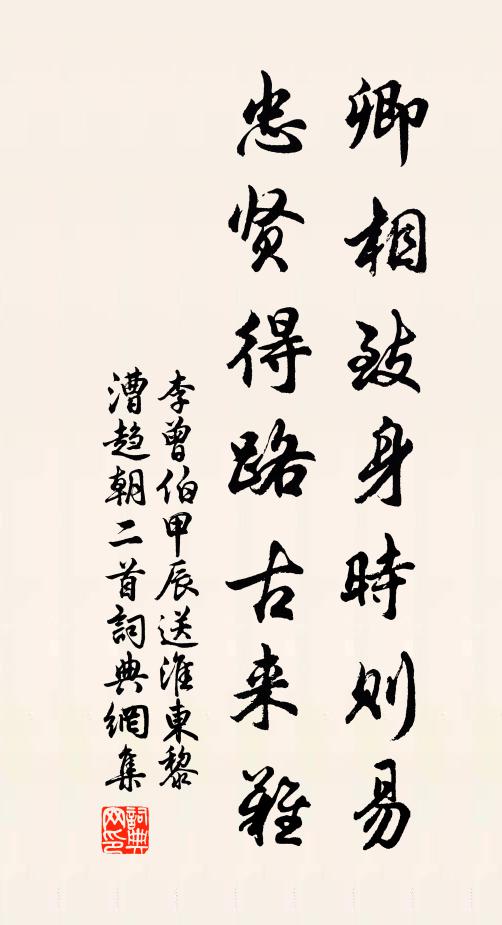 卿相致身時则易
忠贤得路古来難
李曾伯甲辰送淮東黎
漕趋朝二首詞典網集
詞典网印